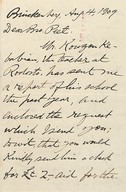 Brinckerby, Aug. 4, 1909
Dear Bro. Peet.
Mr. Kouyumke-
babian, the teacher at
Rodosto, has sent me
a report of his school
the past year, and
inclosed the request
which I send you,
to wit, that you would
kindly send him a check
for Lt. 2- aid for the